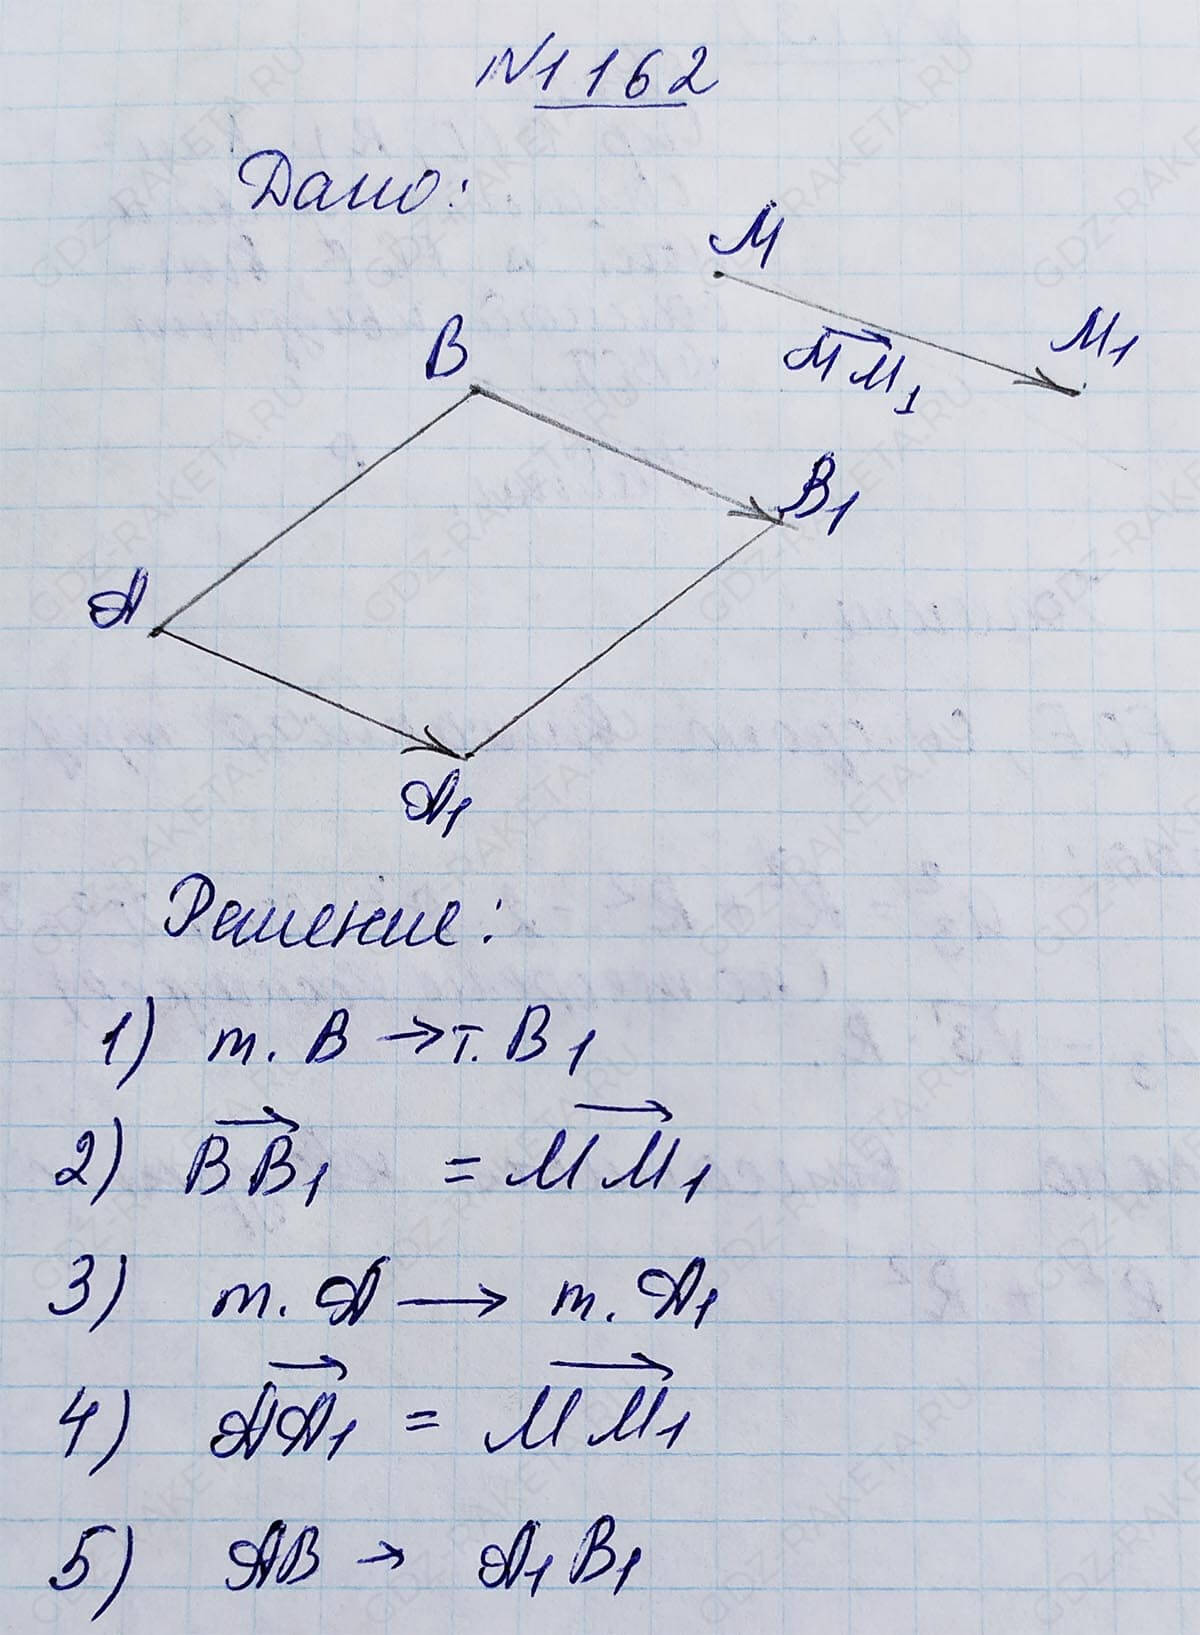 №1162
Дано:
M
M1
MM1
B
B1
A
A1
Решение:
1) т. B → т. B1
2) BB1 = MM1
3) т. A → т. A1
4) AA1 = MM1
5) AB → A1B1
GDZ-RAKETA.RU